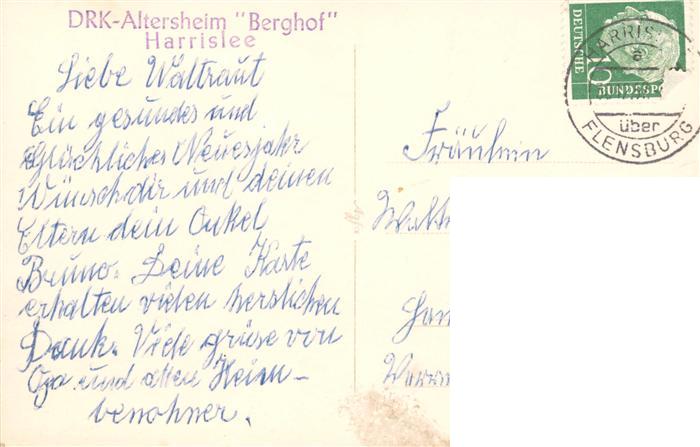 DRK-Altersheim "Berghof"
Harrislee
Liebe Waltraut
Ein gesundes und
Glückliches Neuesjahr
Wünsch dir und deinen
Eltern dein Onkel
Bruno. Deine Karte
erhalten vielen herslichen
Dank. Viele grüse von
Opa und allen Heim-
benohner.
Fräulein
DEUTSCHE
10
BUNDESPO
HARRIS
über
FLENSBURG